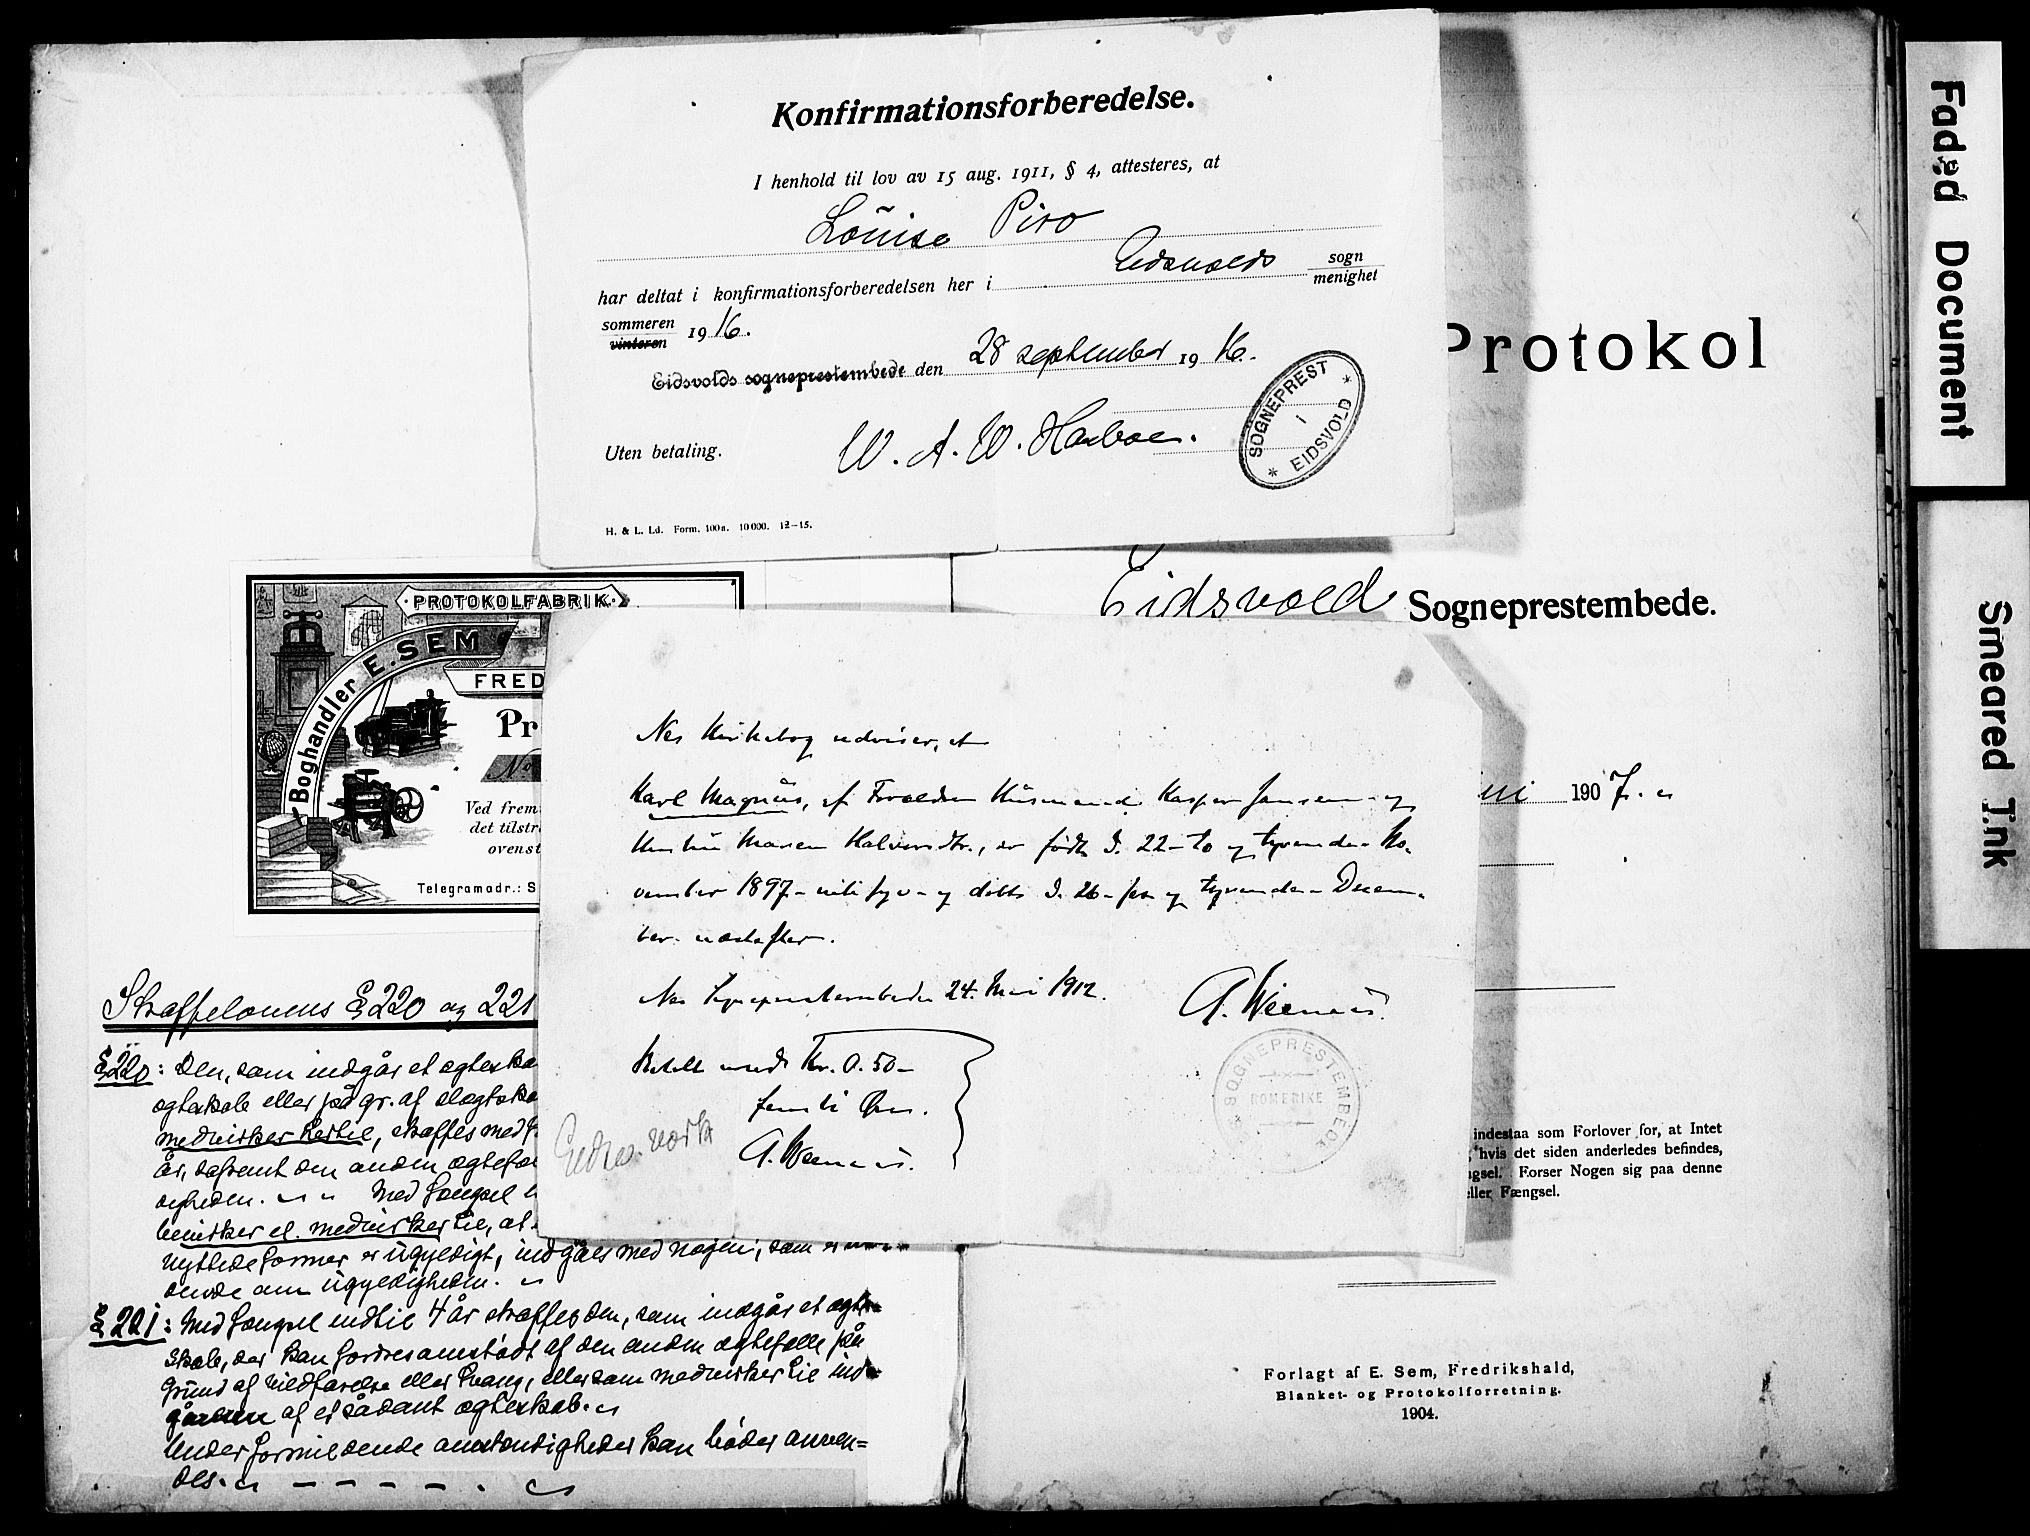 Konfirmationsforberedelse.
I henhold til lov av 15 aug. 1911, § 4, attesteres, at
Louise Piro
har deltat i konfirmationsforberedelsen her i Eidsvolds sogn
menighet
sommeren
vinteren 1916.
Eidsvolds sogneprestembede den 28 september 1916.
Uten betaling.
W. A. W. Harboe.
SOGNEPREST
i
EIDSVOLD
H. & L. Ld. Form. 100a. 10000. 12-15.
Protokol
Eidsvold Sogneprestembede.
PROTOKOLFABRIK
Boghandler E. SEM
FRED
Pr
No
Ved frem
det tilstr
ovenst
Telegramadr.: S
Nes Kirkebog udviser, at
Karl Magnus, af Forældre Husmand Kasper Jansen og
Hustru Maren Halvorsdtr., er født d. 22-to og tyvende- No-
vember 1897- nitisyv- og døbt d. 26- sex og tyvende- Decem-
ber næstefter.
Nes Sogneprestembede 24. Mai 1912.
A. Weenaas.
Betalt med Kr. 0.50-
femti Øre.
A. Weenaas.
SOGNEPRESTEMBEDE
ROMERIKE
190 7.
indestaa som Forlover for, at Intet
hvis det siden anderledes befindes,
ngsel. Forser Nogen sig paa denne
eller Fængsel.
Straffelovens § 220 og 221
§ 220: Den, som indgår et ægteska
ægteskab eller på gr. af slægtska
medvirker hertil, straffes med f
år, såfremt den anden ægtefæ
Med fængsel
bevirker el. medvirker til, at
nyttede former er ugyldigt, indgåes med nogen, som er
dende om ugyldigheden.
§ 221: Med fængsel indtil 4 år straffes den, som indgår et ægte
skab, der kan fordres omstødt af den anden ægtefælle på
grund af vildfarelse eller tvang, eller som medvirker til ind-
gåelsen af et sådant ægteskab.
Under formildende omstændigheder kan bøder anven=
des.
Forlagt af E. Sem, Fredrikshald,
Blanket- og Protokolforretning.
1904.
Faded Document
Smeared Ink